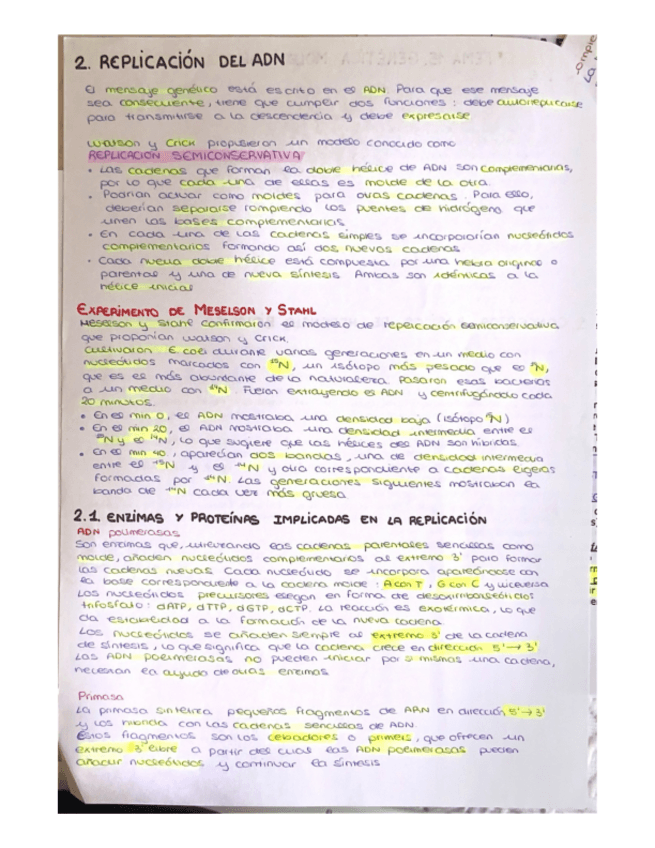 2. REPLICACIÓN DEL ADN
El mensaje genético está escrito en el ADN. Para que ese mensaje
sea consecuente, tiene que cumplir dos funciones: debe autorreplicarse
para transmitirse a la descendencia y debe expresarse.
Watson y Crick propusieron un modelo conocido como
REPLICACIÓN SEMICONSERVATIVA
• Las cadenas que forman la doble hélice de ADN son complementarias,
por lo que cada una de ellas es molde de la otra.
• Podrían actuar como moldes para otras cadenas. Para ello,
deberían separarse rompiendo los puentes de hidrógeno que
unen las bases complementarias
• En cada una de las cadenas simples se incorporarían nucleótidos
complementarios formando así dos nuevas cadenas
• Cada nueva doble hélice está compuesta por una hebra original o
parental y una de nueva síntesis. Ambas son idénticas a la
hélice inicial
EXPERIMENTO DE MESELSON Y STAHL
Meselson y Stahl confirmaron el modelo de replicación semiconservativa
que proponían Watson y Crick.
Cultivaron E. coli durante varias generaciones en un medio con
nucleótidos marcados con ¹⁵N, un isótopo más pesado que el ¹⁴N,
que es el más abundante de la naturaleza. Pasaron esas bacterias
a un medio con ¹⁴N. Fueron extrayendo el ADN y centrifugándolo cada
20 minutos.
• En el min 0, el ADN mostraba una densidad baja (isótopo N)
• En el min 20, el ADN mostraba una densidad intermedia entre el
¹⁵N y el ¹⁴N, lo que sugiere que las hélices del ADN son híbridas.
• En el min 40, aparecían dos bandas, una de densidad intermedia
entre el ¹⁵N y el ¹⁴N y otra correspondiente a cadenas ligeras
formadas por ¹⁴N. Las generaciones siguientes mostraban la
banda de ¹⁴N cada vez más gruesa
2.1 ENZIMAS Y PROTEÍNAS IMPLICADAS EN LA REPLICACIÓN
ADN polimerasas
Son enzimas que, utilizando las cadenas parentales sencillas como
molde, añaden nucleótidos complementarios al extremo 3' para formar
las cadenas nuevas. Cada nucleótido se incorpora apareándose con
la base correspondiente a la cadena molde: A con T, G con C y viceversa
Los nucleótidos precursores llegan en forma de desoxirribonucleótidos
trifosfato: dATP, dTTP, dGTP, dCTP. La reacción es exotérmica, lo que
da estabilidad a la formación de la nueva cadena.
Los nucleótidos se añaden siempre al extremo 3' de la cadena
de síntesis, lo que significa que la cadena crece en dirección 5'→3'
Las ADN polimerasas no pueden iniciar por sí mismas una cadena,
necesitan la ayuda de otras enzimas
Primasa
La primasa sintetiza pequeños fragmentos de ARN en dirección 5'→3'
y los hibrida con las cadenas sencillas de ADN.
Estos fragmentos son los cebadores o primers, que ofrecen un
extremo 3' libre a partir del cual las ADN polimerasas pueden
añadir nucleótidos y continuar la síntesis